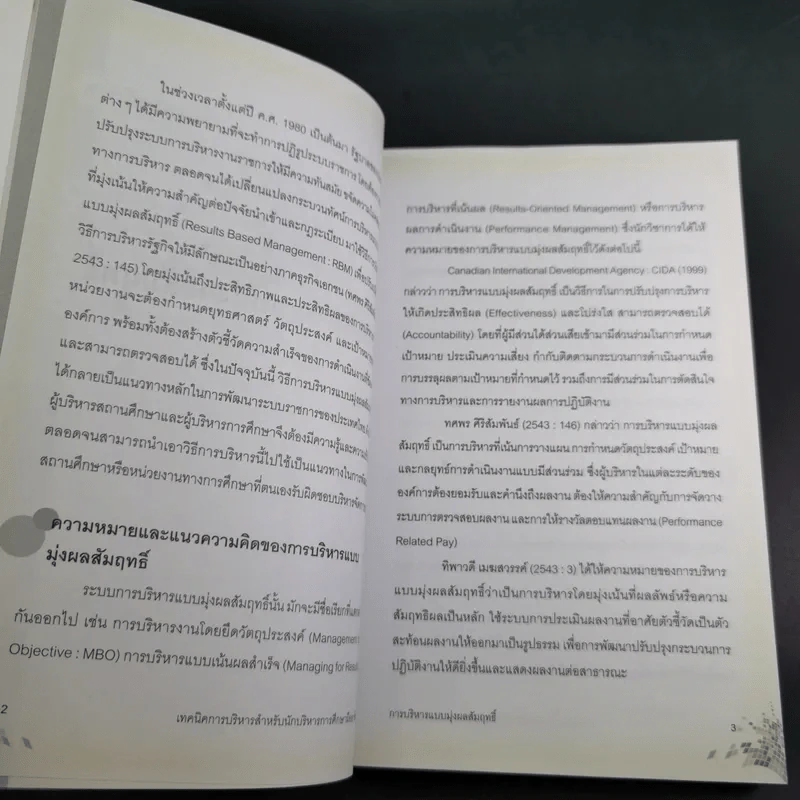 ในช่วงเวลาตั้งแต่ปี ค.ศ. 1980 เป็นต้นมา
ต่าง ๆ ได้มีความพยายามที่จะทำการปฏิรูประบบราชการ
ปรับปรุงระบบการบริหารงานราชการให้มีความทันสมัย
ทางการบริหาร ตลอดจนได้เปลี่ยนแปลงกระบวนทัศน์การบริหาร
ที่มุ่งเน้นให้ความสำคัญต่อปัจจัยนำเข้าและกฎระเบียบ มาใช้
แบบมุ่งผลสัมฤทธิ์ (Results Based Management : RBM)
วิธีการบริหารรัฐกิจให้มีลักษณะเป็นอย่างภาคธุรกิจเอกชน (ทศพร
2543 : 145) โดยมุ่งเน้นถึงประสิทธิภาพและประสิทธิผลของการ
หน่วยงานจะต้องกำหนดยุทธศาสตร์ วัตถุประสงค์ และเป้า
องค์การ พร้อมทั้งต้องสร้างตัวชี้วัดความสำเร็จของการดำเนินงาน
และสามารถตรวจสอบได้ ซึ่งในปัจจุบันนี้ วิธีการบริหารแบบมุ่ง
ได้กลายเป็นแนวทางหลักในการพัฒนาระบบราชการของประเทศไทย
ผู้บริหารสถานศึกษาและผู้บริหารการศึกษาจึงต้องมีความรู้และความ
ตลอดจนสามารถนำเอาวิธีการบริหารนี้ไปใช้เป็นแนวทางในการ
สถานศึกษาหรือหน่วยงานทางการศึกษาที่ตนเองรับผิดชอบบริหาร
ความหมายและแนวความคิดของการบริหารแบบ
มุ่งผลสัมฤทธิ์
ระบบการบริหารแบบมุ่งผลสัมฤทธิ์นั้น มักจะมีชื่อเรียกที่
กันออกไป เช่น การบริหารงานโดยยึดวัตถุประสงค์ (Management
Objective : MBO) การบริหารแบบเน้นผลสำเร็จ (Managing for
2
เทคนิคการบริหารสำหรับนักบริหารการศึกษา
การบริหารที่เน้นผล (Results-Oriented Management) หรือการบริหาร
ผลการดำเนินงาน (Performance Management) ซึ่งนักวิชาการได้ให้
ความหมายของการบริหารแบบมุ่งผลสัมฤทธิ์ไว้ดังต่อไปนี้
Canadian International Development Agency : CIDA (1999)
กล่าวว่า การบริหารแบบมุ่งผลสัมฤทธิ์ เป็นวิธีการในการปรับปรุงการบริหาร
ให้เกิดประสิทธิผล (Effectiveness) และโปร่งใส สามารถตรวจสอบได้
(Accountability) โดยที่ผู้มีส่วนได้ส่วนเสียเข้ามามีส่วนร่วมในการกำหนด
เป้าหมาย ประเมินความเสี่ยง กำกับติดตามกระบวนการดำเนินงานเพื่อ
การบรรลุผลตามเป้าหมายที่กำหนดไว้ รวมถึงการมีส่วนร่วมในการตัดสินใจ
ทางการบริหารและการรายงานผลการปฏิบัติงาน
ทศพร ศิริสัมพันธ์ (2543 : 146) กล่าวว่า การบริหารแบบมุ่งผล
สัมฤทธิ์ เป็นการบริหารที่เน้นการวางแผน การกำหนดวัตถุประสงค์ เป้าหมาย
และกลยุทธ์การดำเนินงานแบบมีส่วนร่วม ซึ่งผู้บริหารในแต่ละระดับของ
องค์การต้องยอมรับและคำนึงถึงผลงาน ต้องให้ความสำคัญกับการจัดวาง
ระบบการตรวจสอบผลงาน และการให้รางวัลตอบแทนผลงาน (Performance
Related Pay)
ทิพาวดี เมฆสวรรค์ (2543 : 3) ได้ให้ความหมายของการบริหาร
แบบมุ่งผลสัมฤทธิ์ว่าเป็นการบริหารโดยมุ่งเน้นที่ผลลัพธ์หรือความ
สัมฤทธิผลเป็นหลัก ใช้ระบบการประเมินผลงานที่อาศัยตัวชี้วัดเป็นตัว
สะท้อนผลงานให้ออกมาเป็นรูปธรรม เพื่อการพัฒนาปรับปรุงกระบวนการ
ปฏิบัติงานให้ดียิ่งขึ้นและแสดงผลงานต่อสาธารณะ
การบริหารแบบมุ่งผลสัมฤทธิ์
3